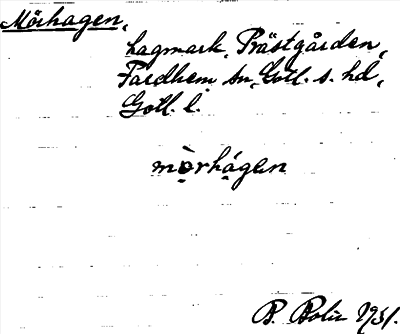 Mörhagen,
hagmark, Prästgården,
Fardhem sn, Gotl. s. hd,
Gotl. l.
mòrhágen
B. Bolin 1931.